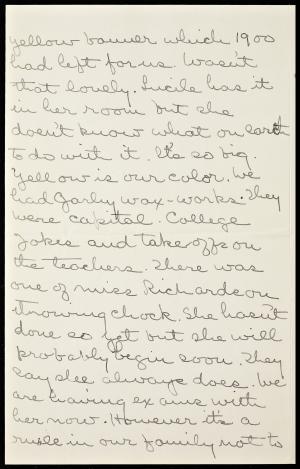 yellow banner which 1900
had left for us. Wasn't
that lovely. Lucile has it
in her room but she
doesn't know what on earth
to do with it. It's so big.
Yellow is our color. We
had Jarley wax-works. They
were capital. College
Jokes and take offs on
the teachers. There was
one of Miss Richardson
throwing chock. She hasn't
done so yet but she will
probably begin soon. They
say she always does. We
are having exams with
her now. However it's a
rule in our family not to